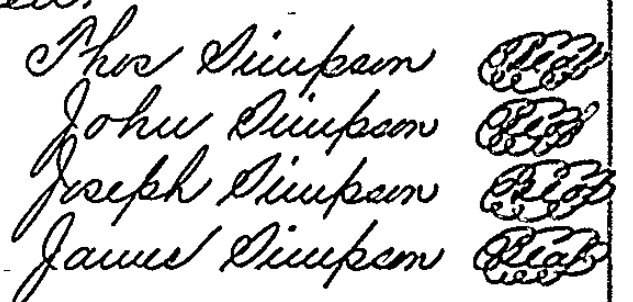 Thos Simpson Seal
John Simpson Seal
Joseph Simpson Seal
James Simpson Seal